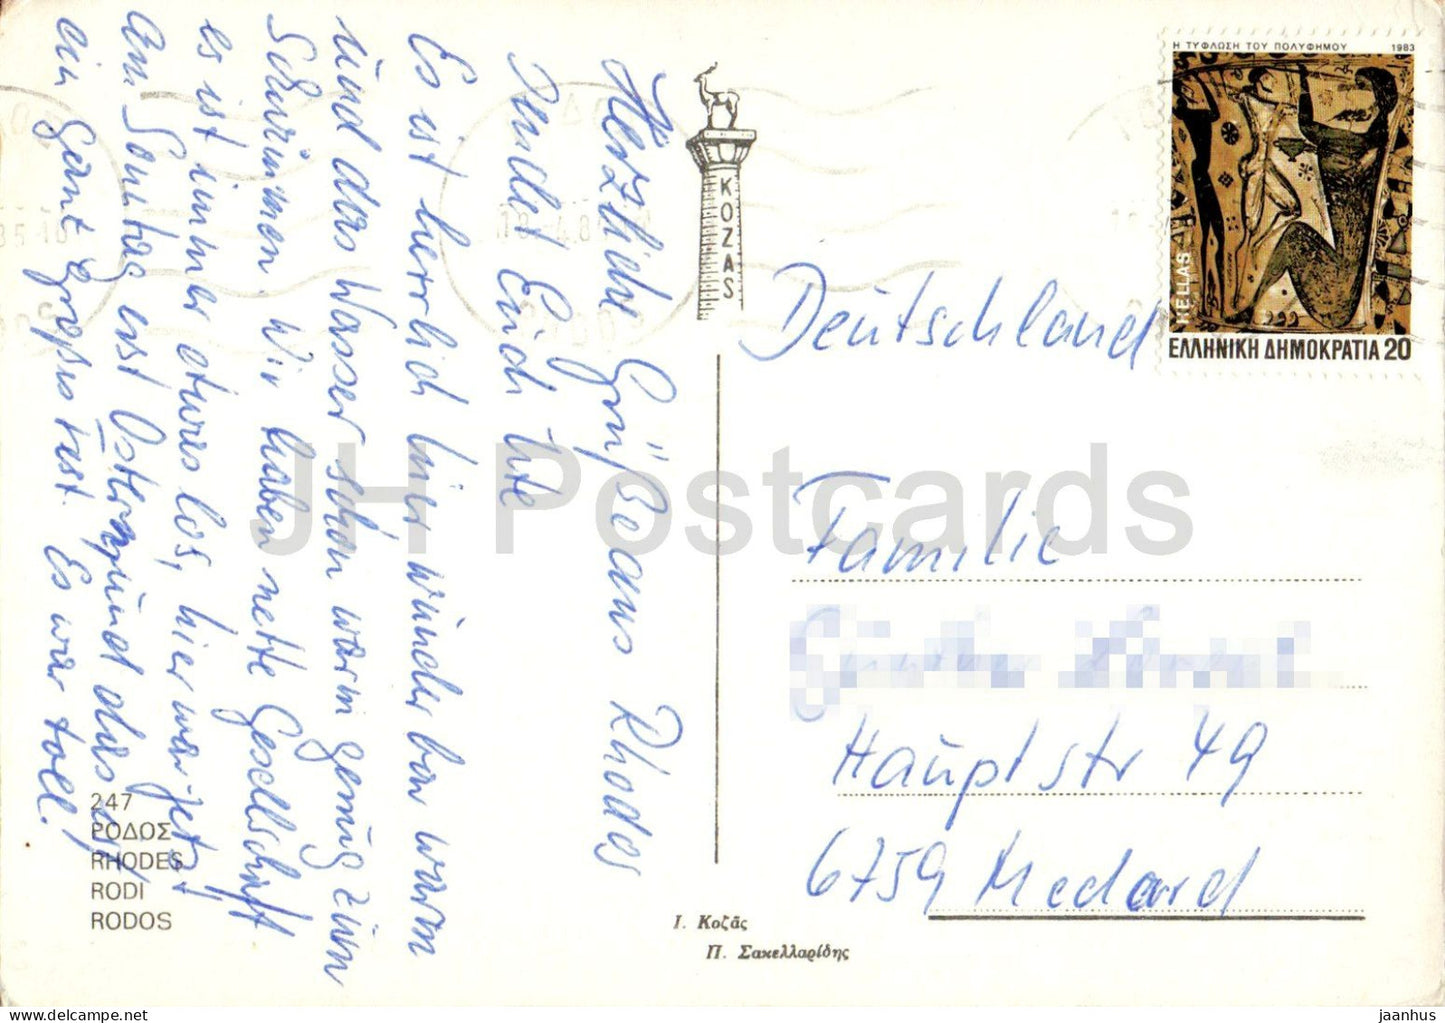 Herzliche Grüße aus Rhodos
sendet Euch Ute
Es ist herrlich hier, wunderbar warm
und das Wasser schon warm genug zum
Schwimmen. Wir haben nette Gesellschaft
es ist immer etwas los, hier war jetzt
am Sonntag erst Ostern, und das ist
ein ganz großes Fest. Es war toll!
247
ΡΟΔΟΣ
RHODES
RODI
RODOS
KOZAS
Ι. Κοζᾶς
Π. Σακελλαρίδης
Η ΤΥΦΛΩΣΗ ΤΟΥ ΠΟΛΥΦΗΜΟΥ 1983
HELLAS
ΕΛΛΗΝΙΚΗ ΔΗΜΟΚΡΑΤΙΑ 20
Deutschland
Familie
Hauptstr 49
6759 Medard
JH Postcards
jaanhus